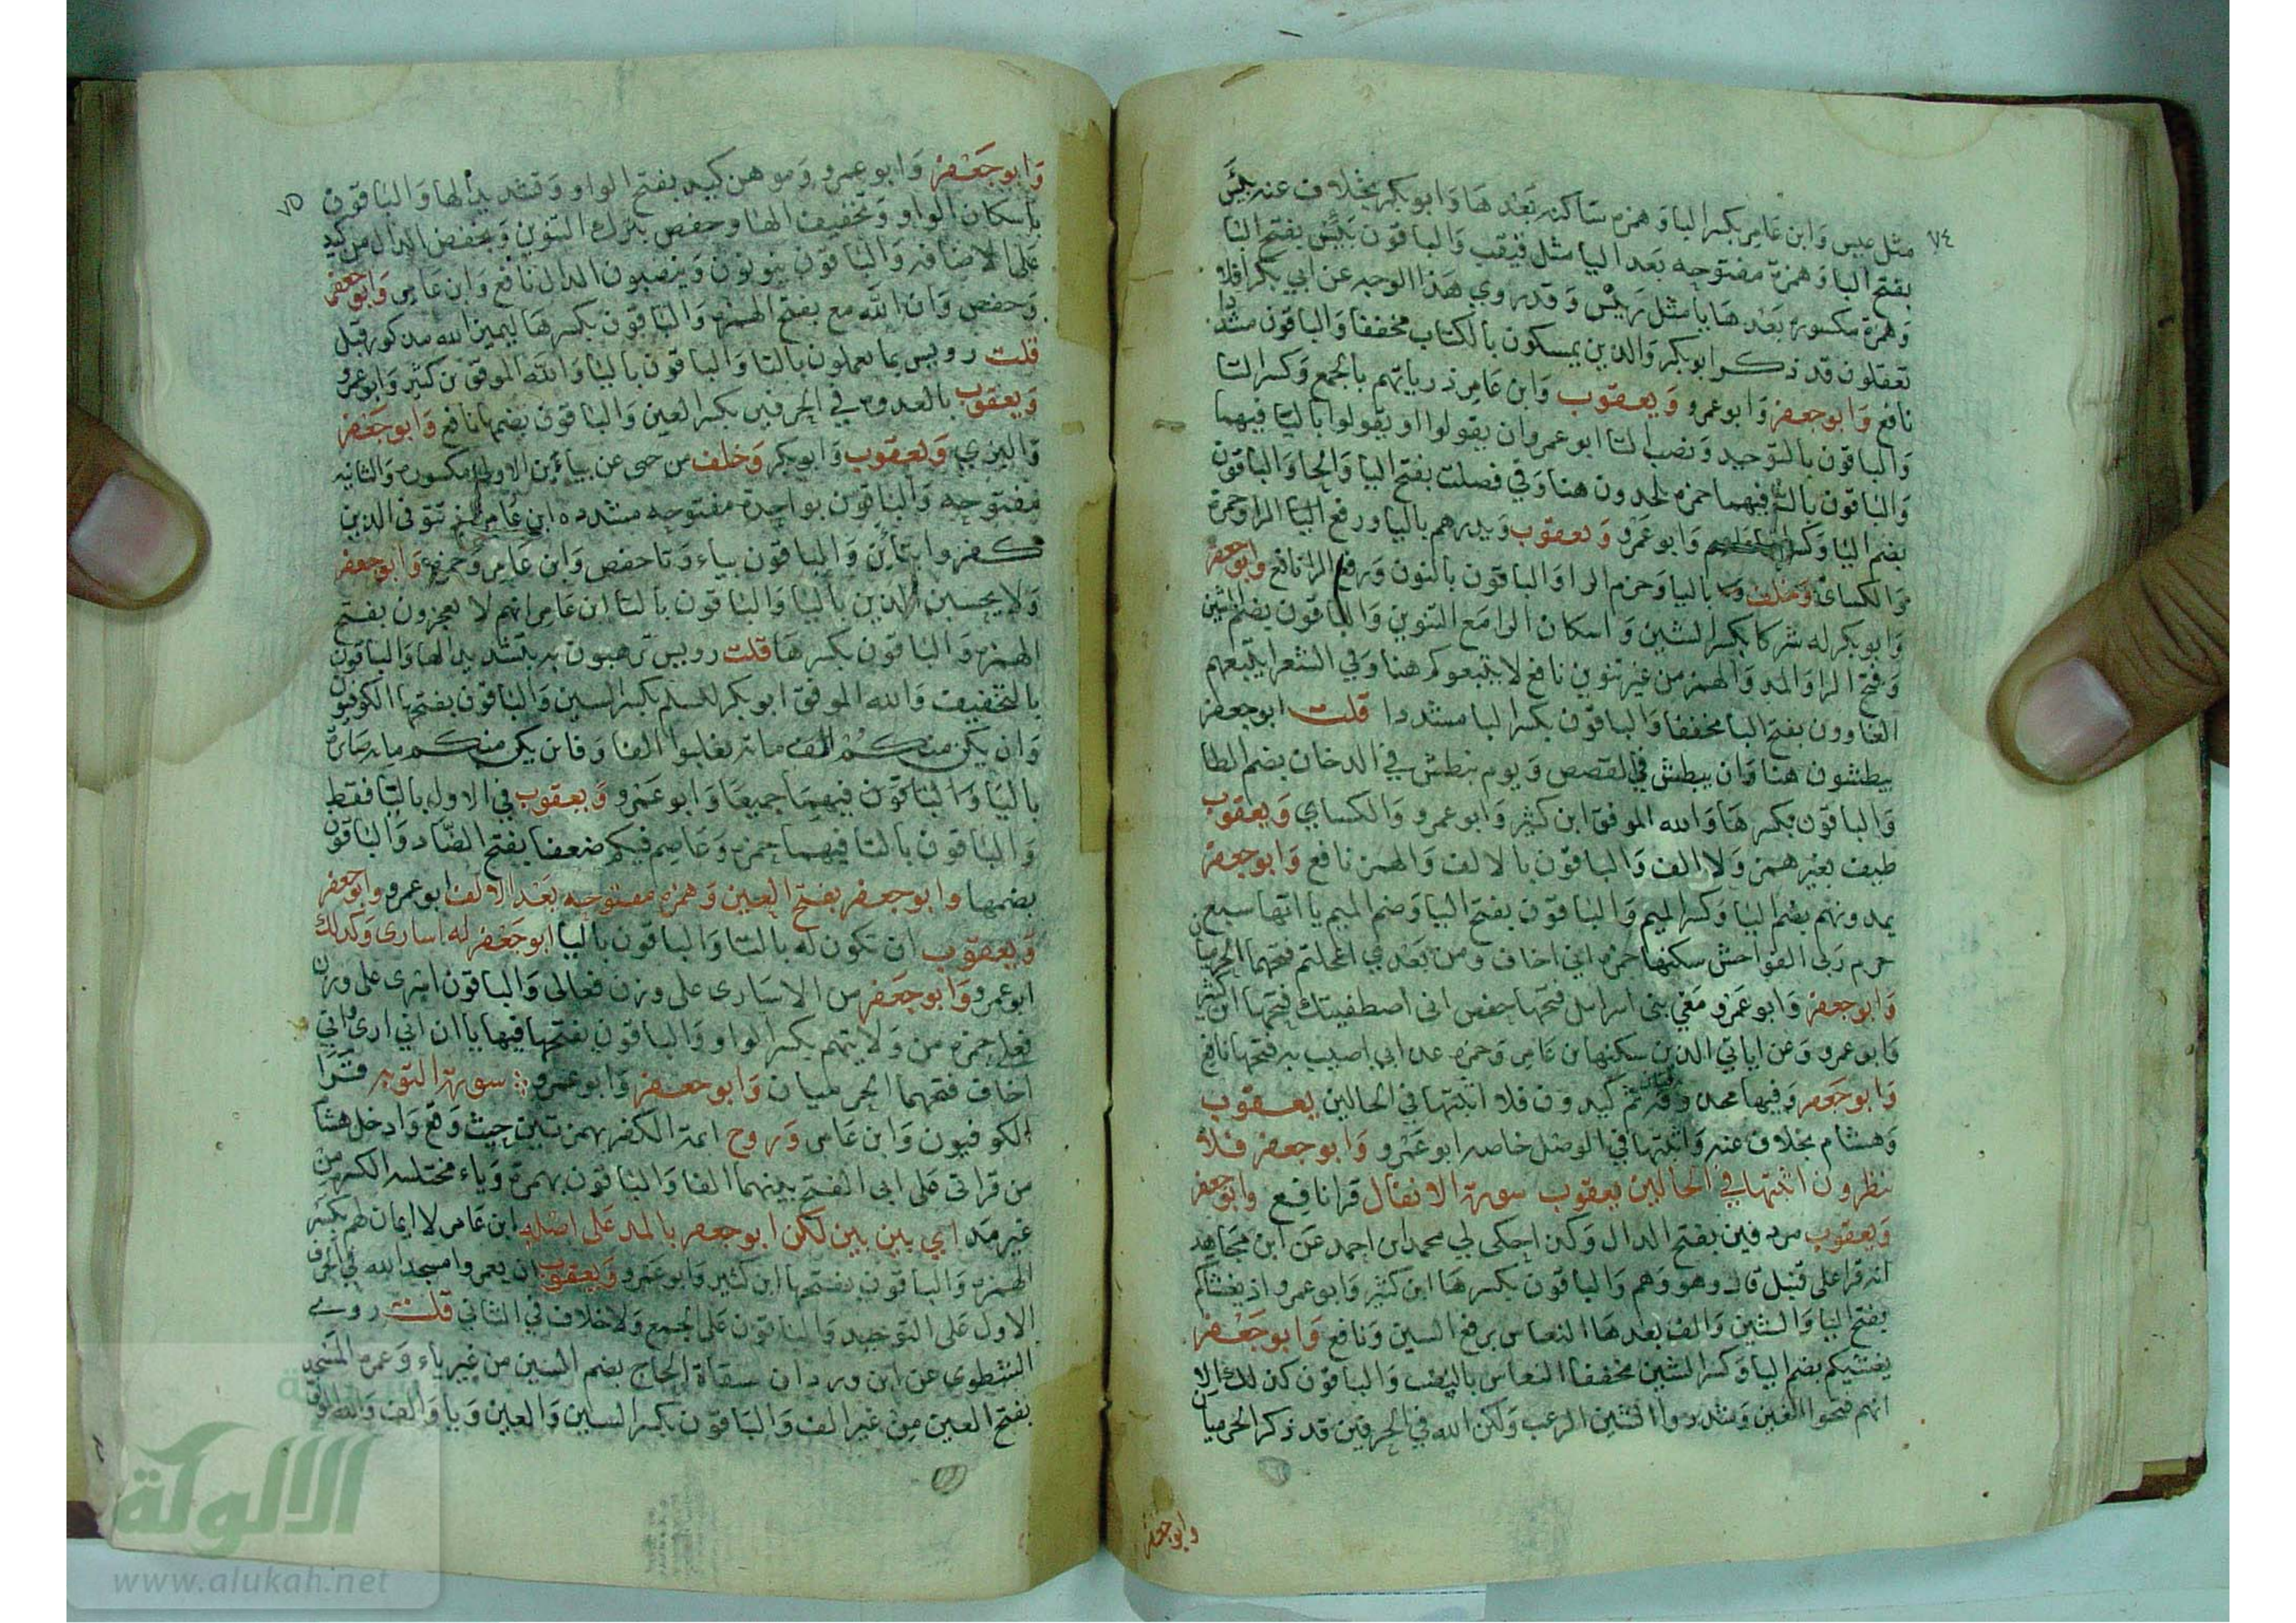 ٧٤
مثل عيس وابن عامر بكسر البا وهمزه ساكنه بعدها وابو بكر بخلاف عنه بيئس
بفتح البا وهمزة مفتوحه بعد اليا مثل فيقب والباقون بئيس بفتح البا
وهمزة مكسوره بعدها يا مثل رئيس وقد روي هذا الوجه عن ابي بكر افلا
تعقلون قد ذكر ابو بكر والذين يمسكون بالكتاب مخففا والباقون مشددا
نافع وابو جعفر وابو عمرو ويعقوب وابن عامر ذرياتهم بالجمع وكسر التا
والباقون بالتوحيد ونصب التا ابو عمرو ان يقولوا او يقولوا باليا فيهما
والباقون بالتا فيهما حمزه يلحدون هنا وفي فصلت بفتح اليا والحا والباقون
بضم اليا وكسر وابو عمرو ويعقوب ويذرهم باليا ورفع اليا الرا وحمزة
والكسائي وخلف باليا وجزم الرا والباقون بالنون ورفع الرا نافع وابو جعفر
وابو بكر له شركا بكسر الشين واسكان الرا مع التنوين والباقون بضم الشين
وفتح الرا والمد والهمز من غير تنوين نافع لا يتبعوكم هنا وفي الشعرا يتبعهم
الغاوون بفتح البا مخففا والباقون بكسر البا مشددا قلت ابو جعفر
يبطشون هنا وان يبطش في القصص ويوم نبطش في الدخان بضم الطا
والباقون بكسرها والله الموفق ابن كثير وابو عمرو والكساي ويعقوب
طيف بغير همز ولا الف والباقون بالالف والهمز نافع وابو جعفر
يمدونهم بضم اليا وكسر الميم والباقون بفتح اليا وضم الميم يا اتها سبع
حرم ربى الفواحش سكنها حمزه اني اخاف ومن بعدي اعجلتم فتحهما الحرميان
وابو جعفر وابو عمرو معي بنى اسرايل فتحها حفص انى اصطفيتك فتحها ابن كثير
وابو عمرو وعن اياتي الذين سكنها بن عامر وحمزه عذابي اصيب به فتحها نافع
وابو جعفر وفيها محذوفتان ثم كيدون فلا اثبتها في الحالين يعقوب
وهشام بخلاف عنه واثبتها في الوصل خاصه ابو عمرو وابو جعفر فلا
تنظرون اثبتها في الحالين يعقوب سورة الانفال قرا نافع وابو جعفر
ويعقوب مردفين بفتح الدال وكذا حكى لي محمد بن احمد عن ابن مجاهد
انه قرا على قنبل قال وهو وهم والباقون بكسرها ابن كثير وابو عمرو اذ يغشاكم
بفتح اليا والشين والف بعدها النعاس برفع السين ونافع وابو جعفر
يغشيكم بضم اليا وكسر الشين مخففا النعاس بالنصب والباقون كذلك الا
انهم فتحوا الغين وشددوا الشين الرعب ولكن الله في الحرفين قد ذكر الحرميان
وابو جعفر
٧٥
وابو جعفر وابو عمرو وموهن كيد بفتح الواو وتشديد الها والباقون
باسكان الواو وتخفيف الها وحفص بترك التنوين وبخفض الدال من كيد
على الاضافه والباقون ينونون وينصبون الدال نافع وابن عامر وابو جعفر
وحفص وان الله مع بفتح الهمزه والباقون بكسرها ليميز الله مذكور قبل
قلت رويس بما يعملون بالتا والباقون باليا والله الموفق بن كثير وابو عمرو
ويعقوب بالعدوه في الحرفين بكسر العين والباقون بضمها نافع وابو جعفر
والبزي ويعقوب وابو بكر وخلف من حيى عن بياءين الاولى مكسوره والثانيه
مفتوحه والباقون بواحدة مفتوحه مشدده ابن عامر اذ تتوفى الذين
كفروا بتاءين والباقون بياء وتا حفص وابن عامر وحمزه وابو جعفر
ولا يحسبن الذين باليا والباقون بالتا ابن عامر انهم لا يعجزون بفتح
الهمزه والباقون بكسرها قلت رويس ترهبون به بتشديد الها والباقون
بالتخفيف والله الموفق ابو بكر للسلم بكسر السين والباقون بفتحها الكوفيون
وان يكن منكم الف مائة يغلبوا الفا وفان يكن منكم مايه صابرة
باليا والباقون فيهما جميعا وابو عمرو ويعقوب في الاول باليا فقط
والباقون بالتا فيهما حمزه وعاصم فيكم ضعفا بفتح الضاد والباقون
بضمها وابو جعفر بفتح العين وهمزه مفتوحه بعد الالف ابو عمرو وابو جعفر
ويعقوب ان تكون له بالتا والباقون باليا ابو جعفر له اسارى وكذلك
ابو عمرو وابو جعفر من الاسارى على وزن فعالى والباقون اسرى على وزن
فعلى حمزه من ولايتهم بكسر الواو والباقون بفتحها فيها ياان اني ارى واني
اخاف فتحهما الحرميان وابو جعفر وابو عمرو سورة التوبه قرا
الكوفيون وابن عامر وروح ائمة الكفر بهمزتين حيث وقع وادخل هشام
من قراتى على ابى الفتح بينهما الفا والباقون بهمزة وياء مختلسه الكسره من
غير مد اي بين بين لكن ابو جعفر بالمد على اصله ابن عامر لا ايمان لهم بكسر
الهمزه والباقون بفتحها ابن كثير وابو عمرو ويعقوب ان يعمروا مسجد الله في الحرف
الاول على التوحيد والباقون على الجمع ولا خلاف في الثاني قلت روى
الشطوى عن ابن وردان سقاة الحاج بضم السين من غير ياء وعمرة المسجد
بفتح العين من غير الف والباقون بكسر السين والعين ويا والف والله الموفق
الألوكة
www.alukah.net